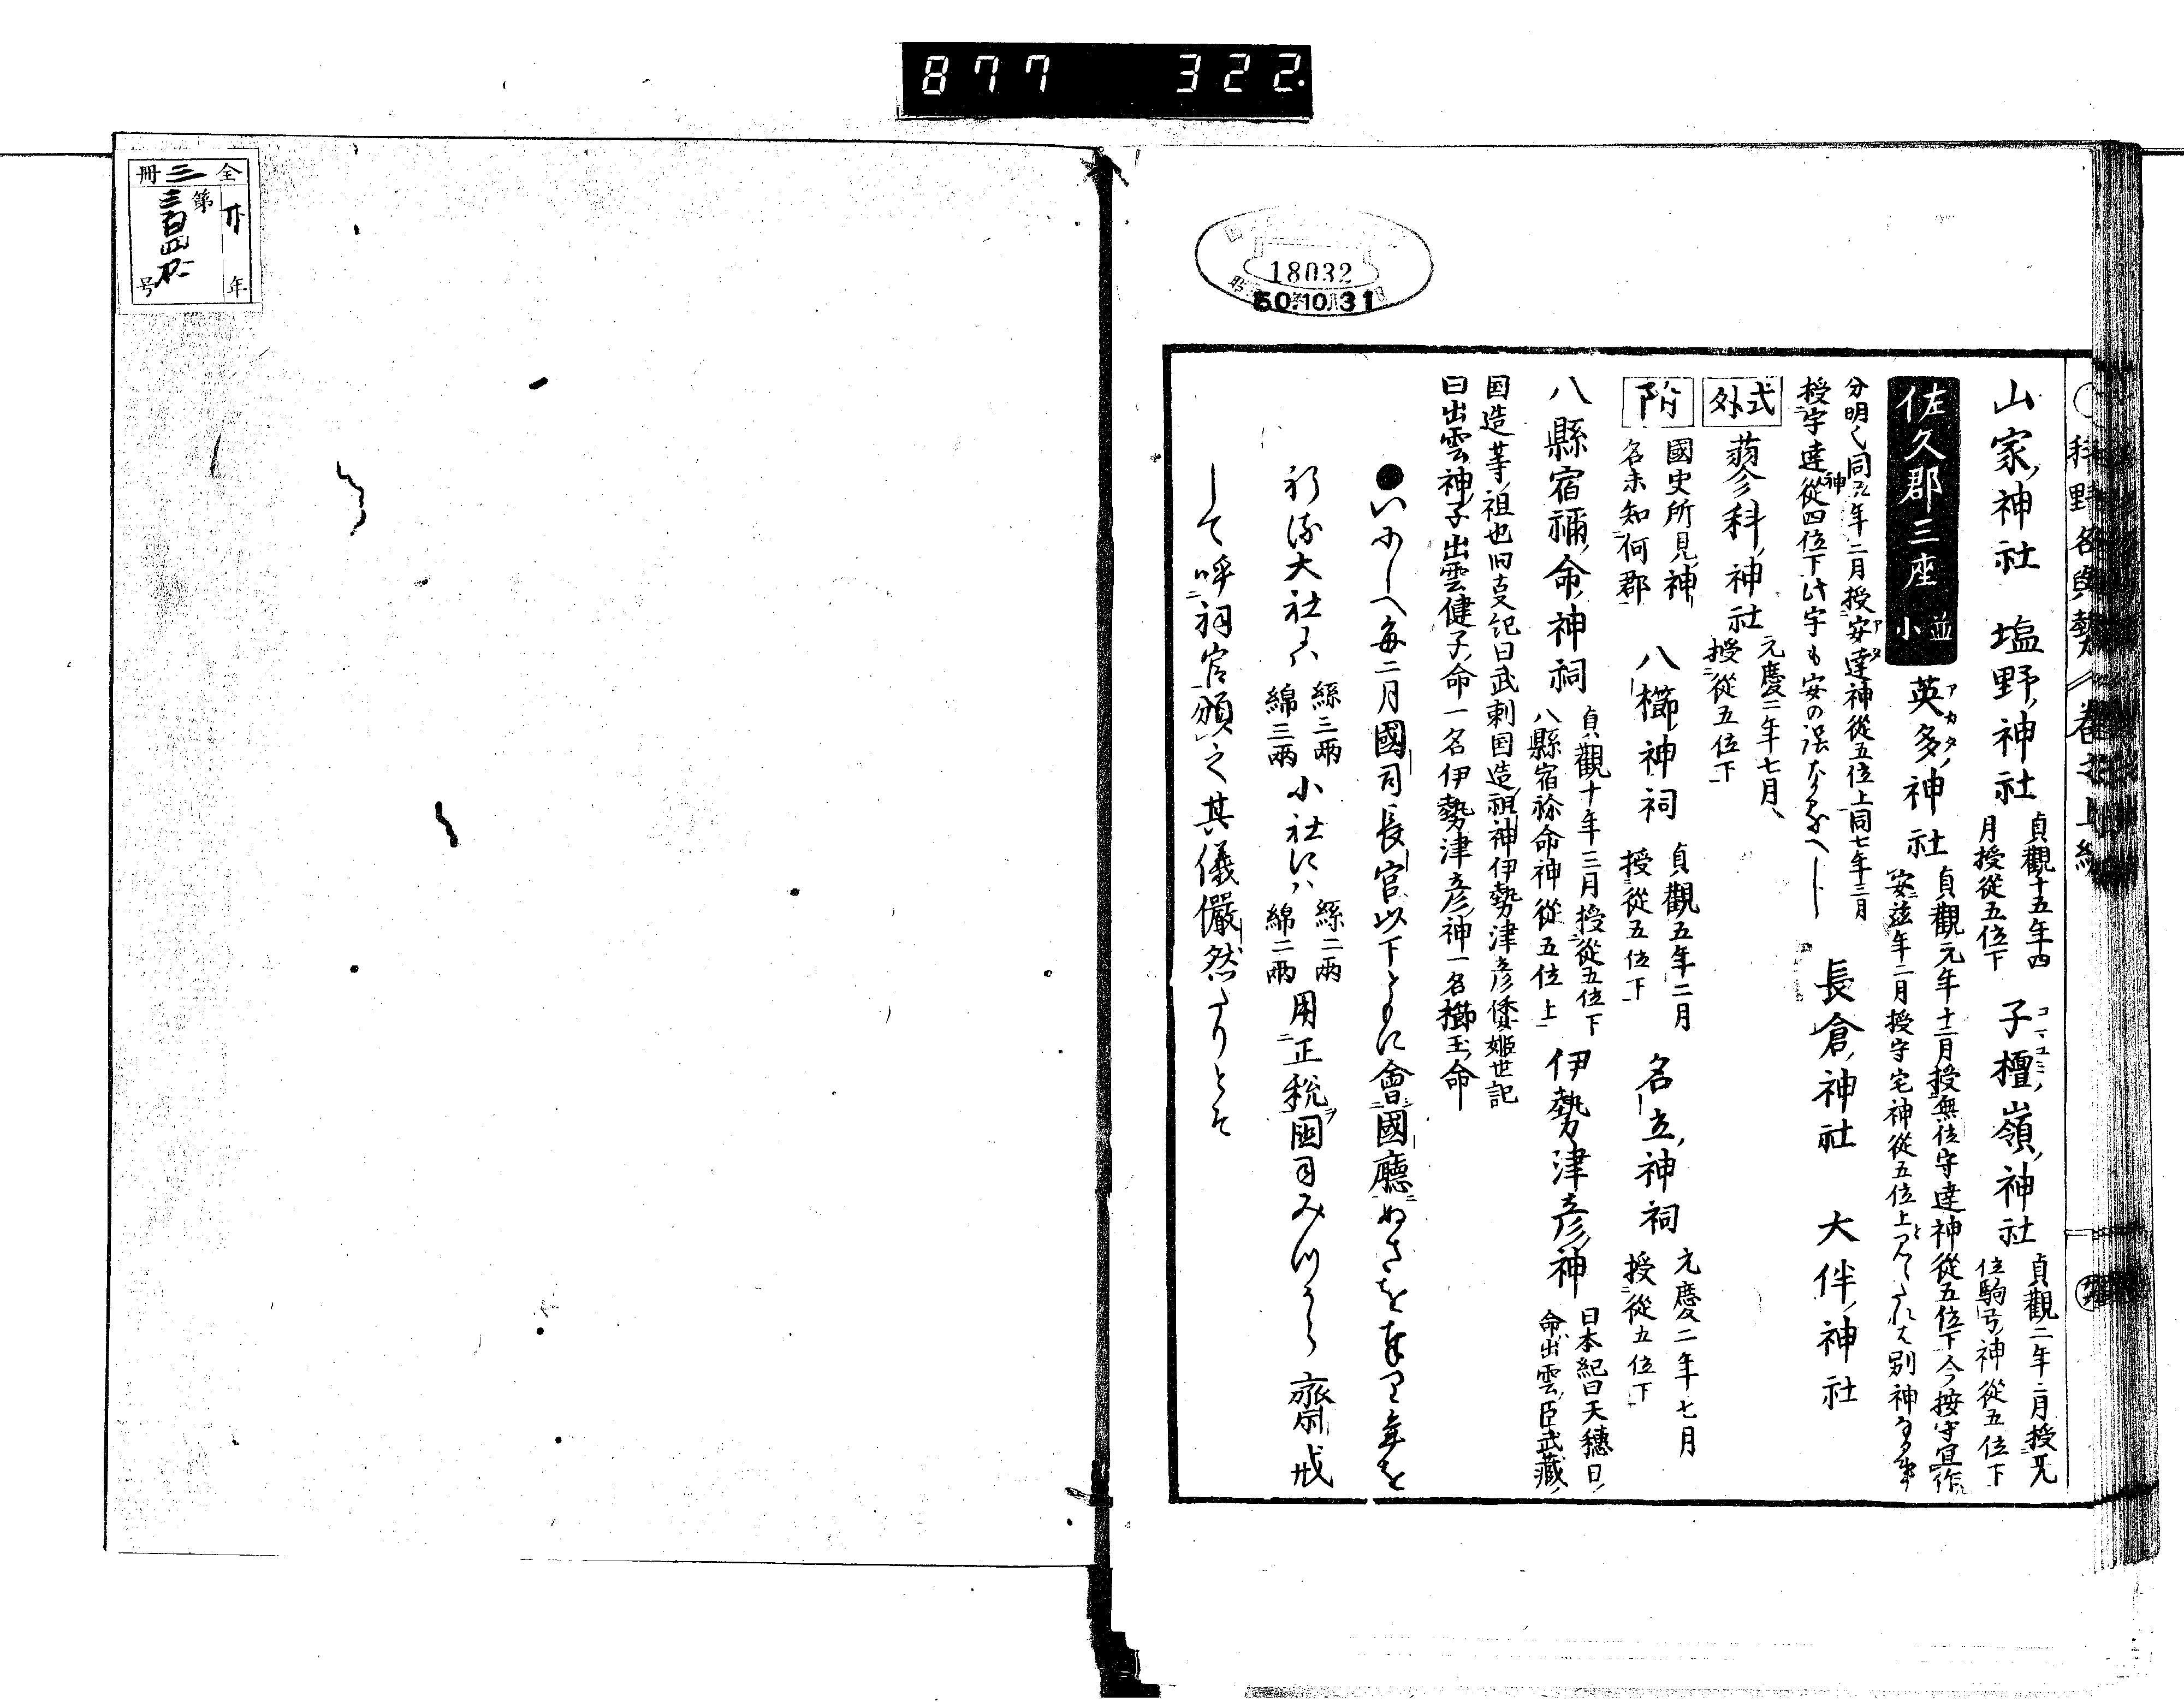 877 322
18032
50.10.31
山家神社 塩野神社 貞觀十五年四
月授從五位下 子檀嶺神社 貞觀二年二月授无
位駒弓神從五位下
佐久郡三座 並小 英多神社 貞觀元年十二月授無位守達神從五位下今按守宜作
安茲年二月授守宅神從五位上
分明同九年二月授安達神從五位上同七年三月
授守達神從四位下此守も安の誤なるへし 長倉神社 大伴神社
式外 蓼科神社 元慶二年七月
授從五位下
國史所見神
名未知何郡 八櫛神祠 貞觀五年二月
授從五位下 名立神祠 元慶二年七月
授從五位下
八縣宿禰命神祠 貞觀十年三月授從五位下
八縣宿祢命神從五位上 伊勢津彦神 日本紀曰天穗日
命出雲臣武藏
国造等祖也旧事紀曰武刺国造祖神伊勢津彦倭姫世記
曰出雲神子出雲健子命一名伊勢津彦神一名櫛玉命
●いにしへ毎二月國司長官以下ともに會國廳ぬさを奉り年を
祈る大社には 絲三兩
綿三兩 小社には 絲二兩
綿二兩 用正税国司みつから齋戒
して呼祠官頒之其儀儼然たりとそ
全三冊
第三百四
年
号